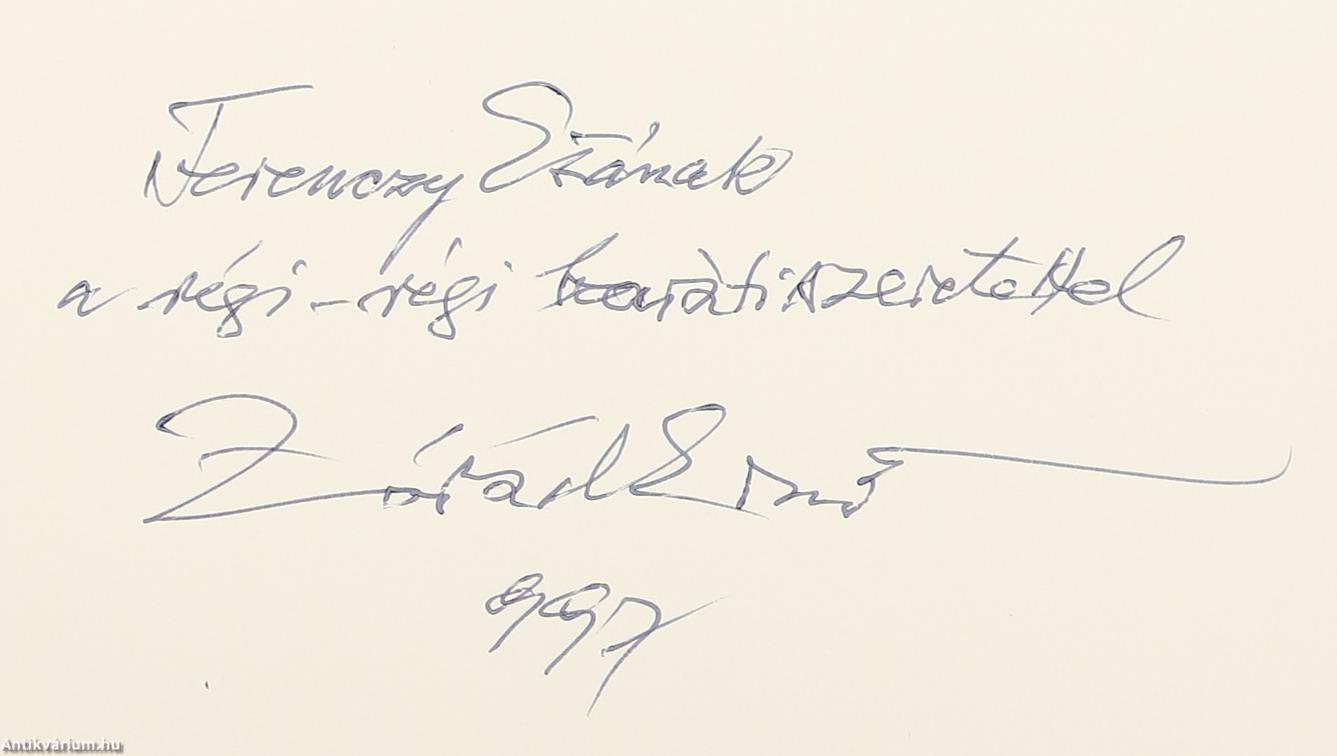 FerenczyÉzsának
a régi-régi baráti szeretettel
Zórád Ernő
997
Antikvárium.hu